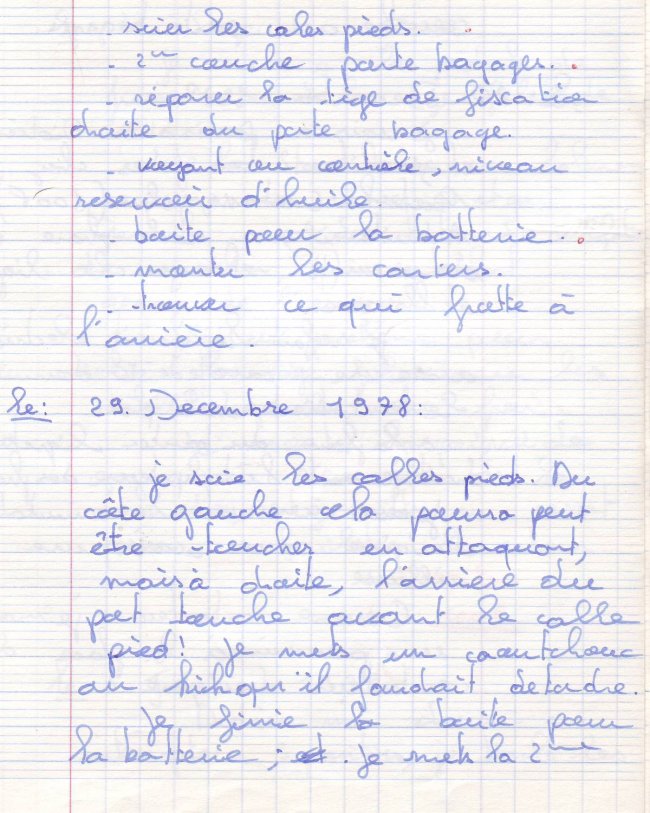 - scier les cales pieds.
- 2me couche porte bagages.
- réparer la tige de fiscation
droite du porte bagage.
- voyant ou contrôle, niveau
reservoir d'huile.
- boite pour la batterie.
- monter les carters.
- trouver ce qui frotte à
l'arrière.
le: 29. Decembre 1978:
je scie les calles pieds. Du
côte gauche cela pourra peut
être toucher en attaquant,
mais à droite, l'arriere du
pot touche avant le calle
pied! je mets un caoutchouc
au kick qu'il faudrait detendre.
je finie la boite pour
la batterie ; . je mets la 2me